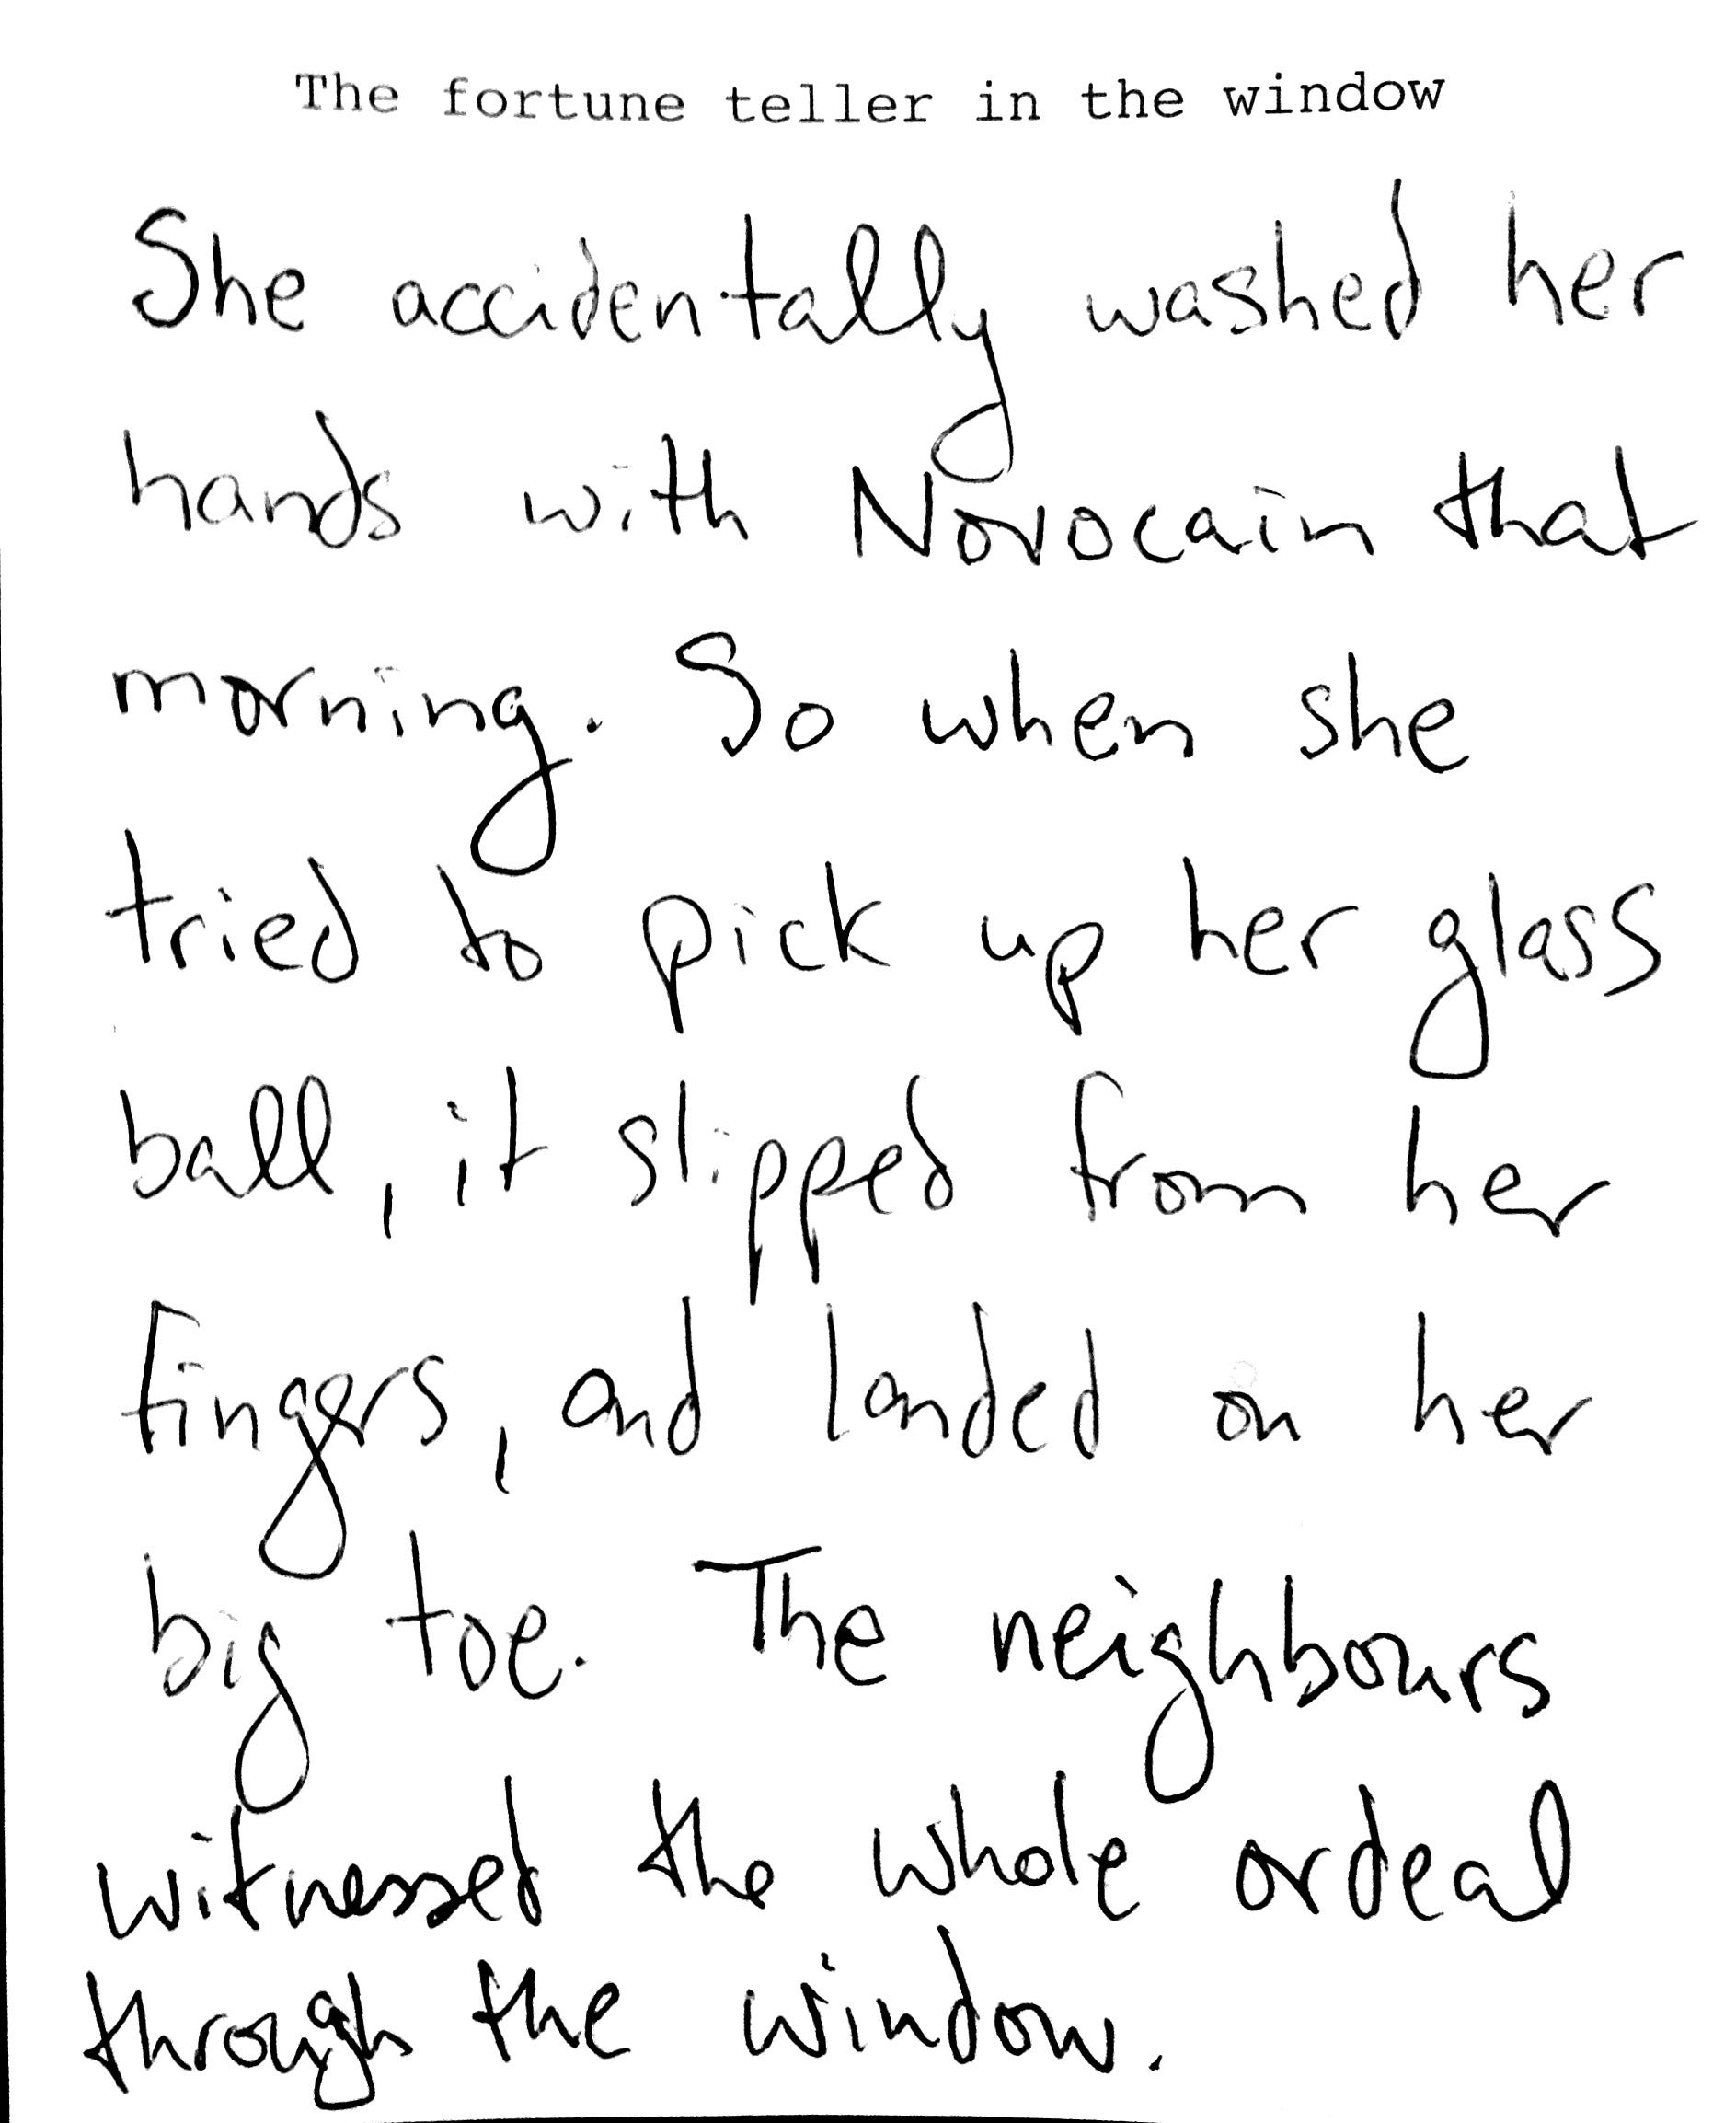 The fortune teller in the window
She accidentally washed her
hands with Novocain that
morning. So when she
tried to pick up her glass
ball, it slipped from her
fingers, and landed on her
big toe. The neighbours
witnessed the whole ordeal
through the window.